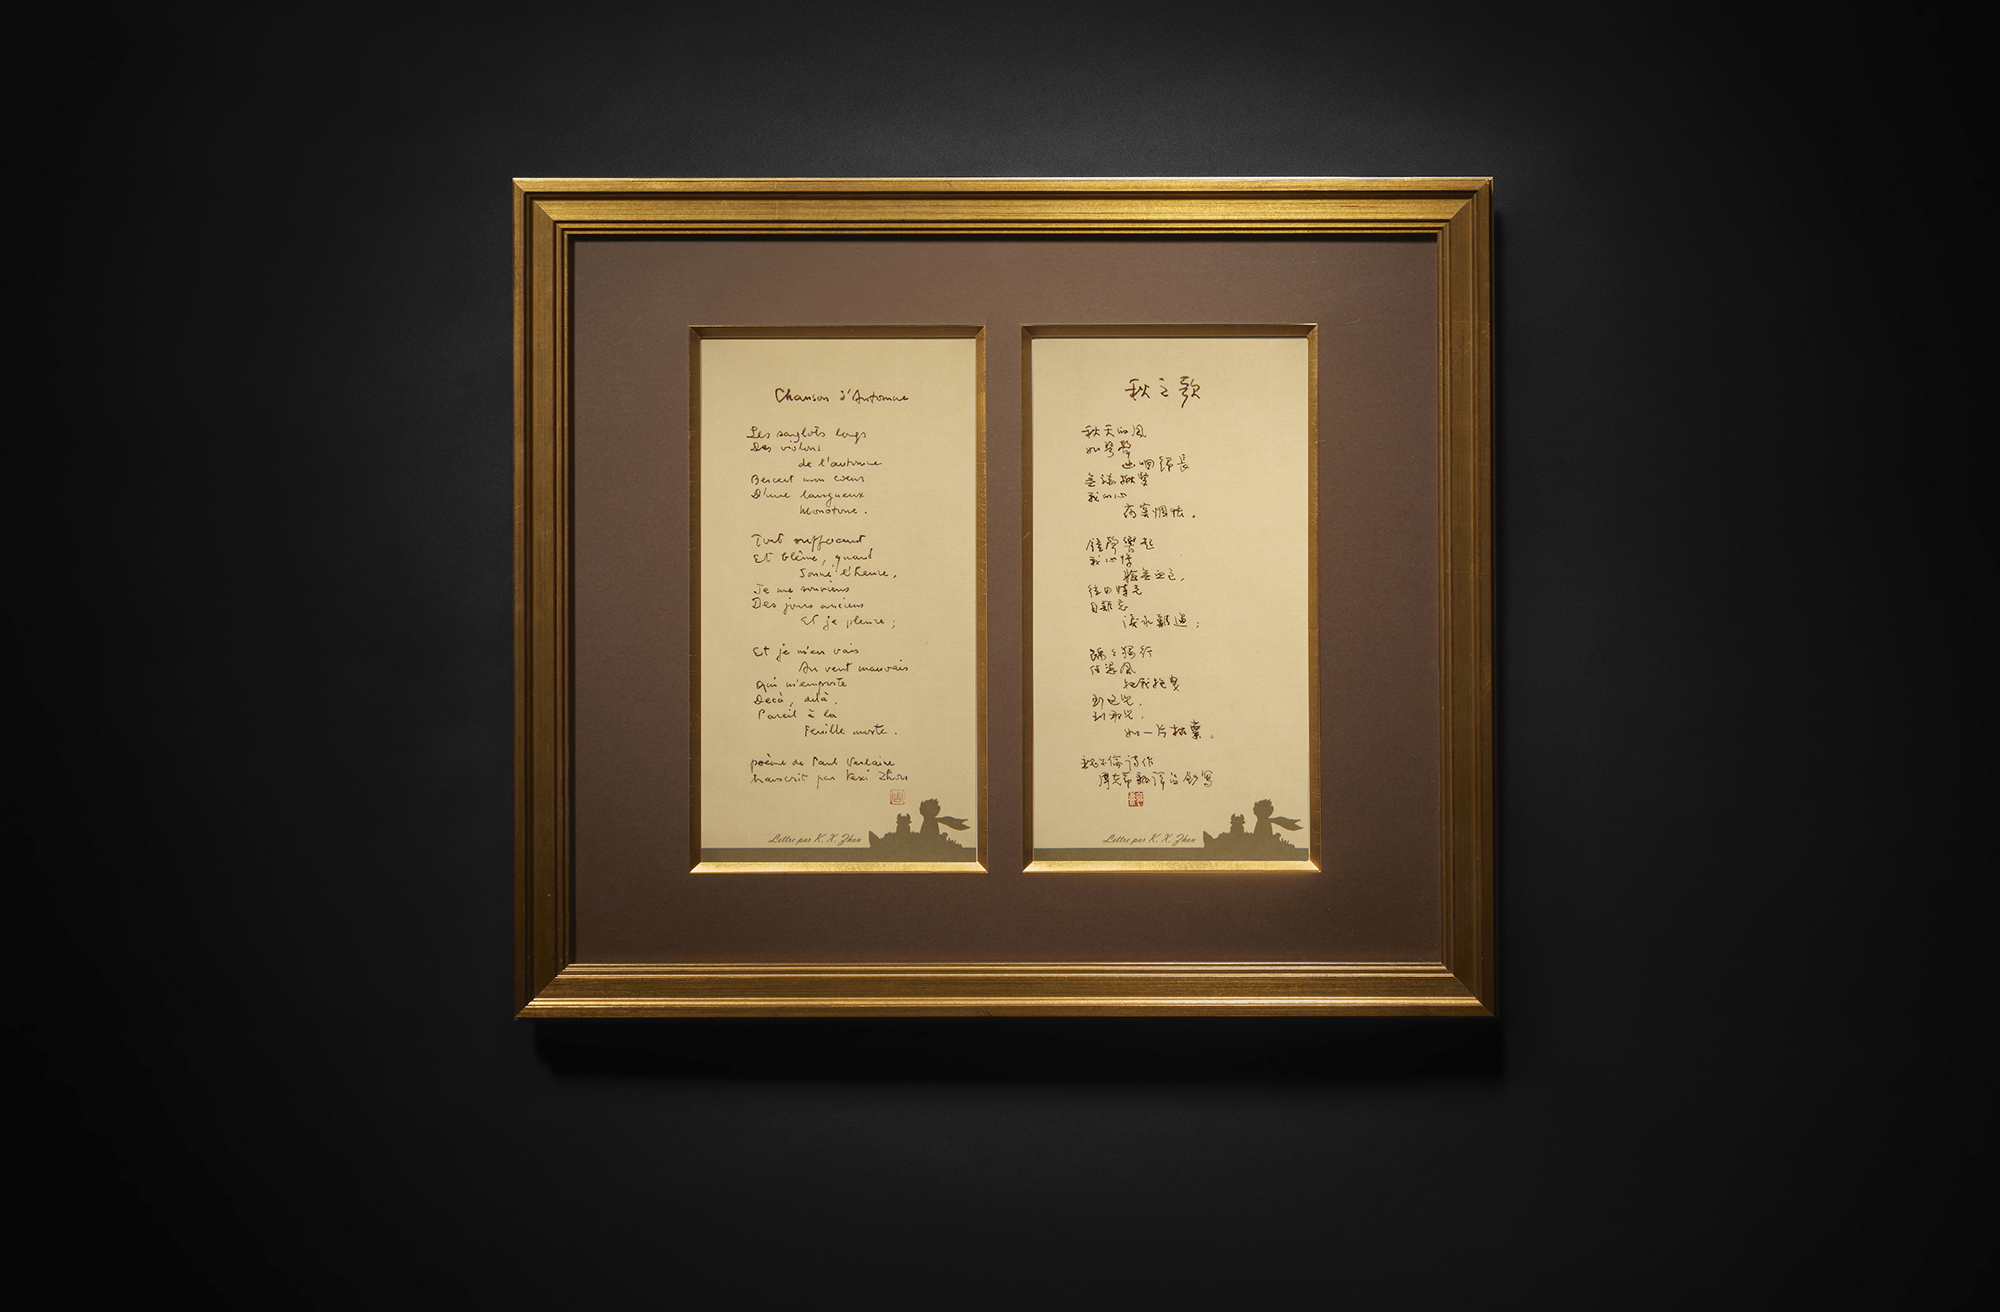 Chanson d'Automne
Les sanglots longs
Des violons
de l'automne
Bercent mon cœur
D'une langueur
Monotone.
Tout suffocant
Et blême, quand
Sonne l'heure,
Je me souviens
Des jours anciens
Et je pleure;
Et je m'en vais
Au vent mauvais
Qui m'emporte
Deçà, delà,
Pareil à la
Feuille morte.
poème de Paul Verlaine
transcrit par Kexi Zhou
Lettre par K. X. Zhou
秋之歌
秋天的風
如琴聲
幽咽綿長
無端撫弄
我的心
寂寞惆悵。
鐘聲響起
我心悸
臉無血色,
往日情
自難忘
淚水難遏;
踽々獨行
任涼風
把我拖曳
到這兒,
到那兒,
如一片枯葉。
魏尔倫詩作
周克希翻譯並鈔寫
Lettre par K. X. Zhou